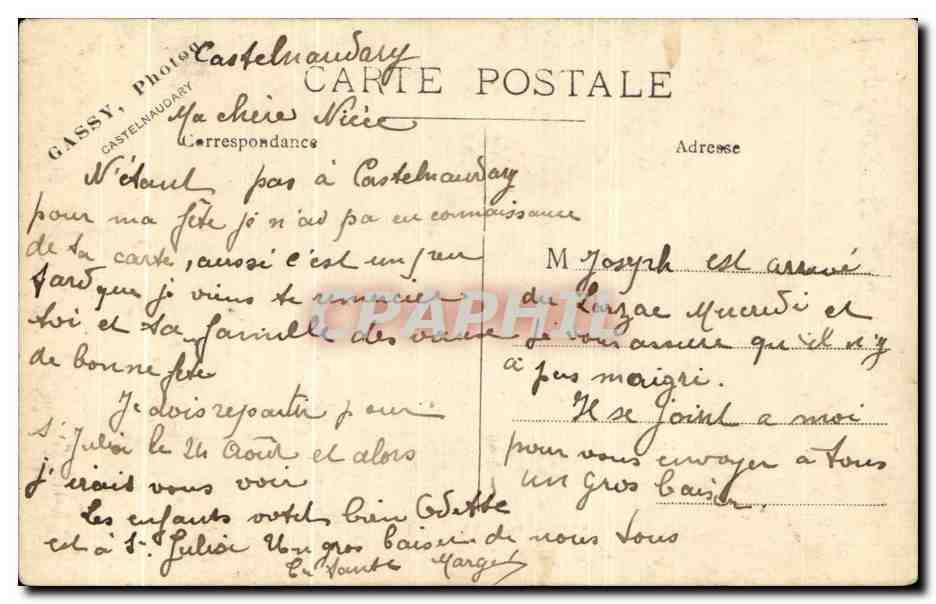 Castelnaudary
GASSY, Photog
CASTELNAUDARY
CARTE POSTALE
Ma chère Nièce
Correspondance
Adresse
N'étant pas à Castelnaudary
pour ma fête je n'ai pa eu connaissance
de ta carte, aussi c'est un peu
tard que je viens te remercier
toi et ta famille des vœux
de bonne fête
Je dois repartir pour
St Julia le 24 Août et alors
j'irais vous voir
Les enfants vont bien Odette
est à St Julia Un gros baiser de nous tous
Ta tante Margt
M Joseph est arrivé
du Larzac Mercredi et
je vous assure qu'il n'y
a pas maigri.
Il se joint a moi
pour vous envoyer à tous
un gros baiser.
CPAPHIL